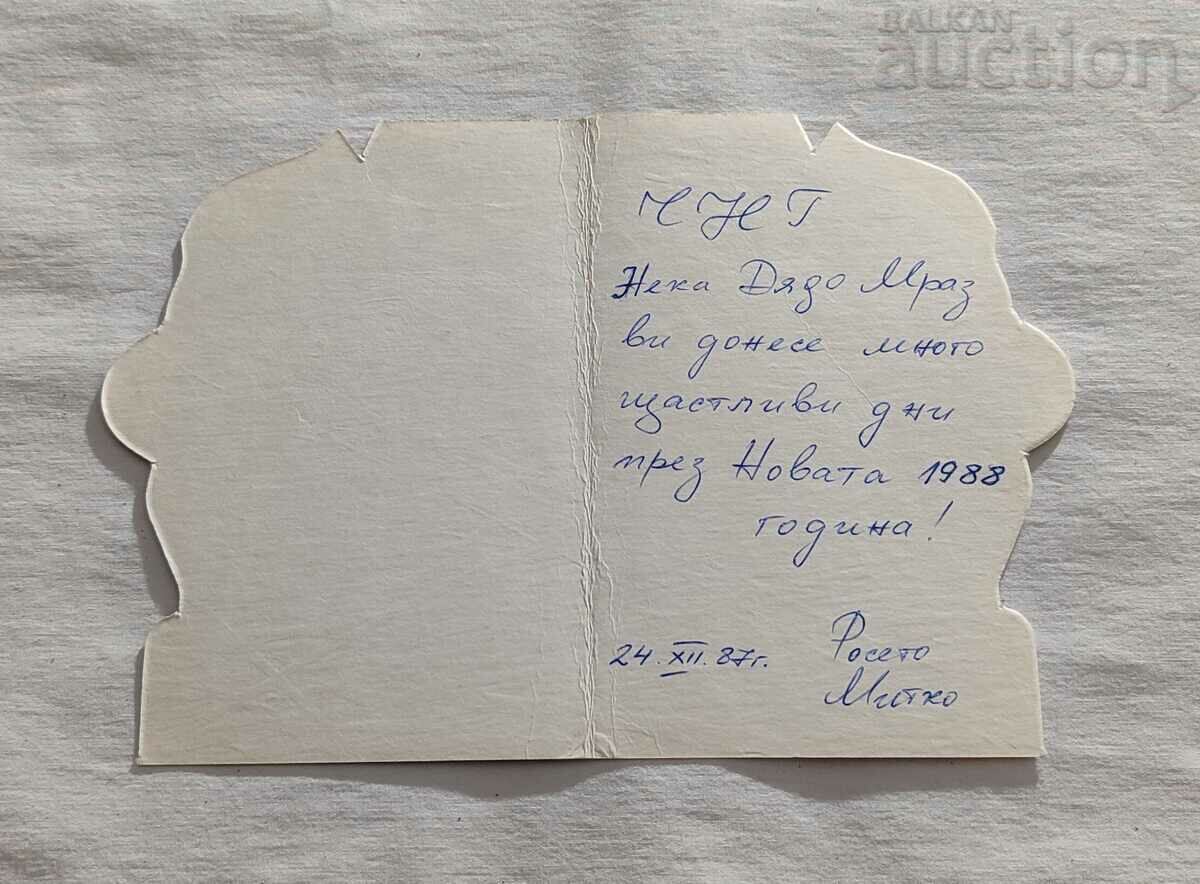 BALKAN
auction
ЧНГ
Нека Дядо Мраз
ви донесе много
щастливи дни
през Новата 1988
година!
24.XII.87г.
Росето
Митко